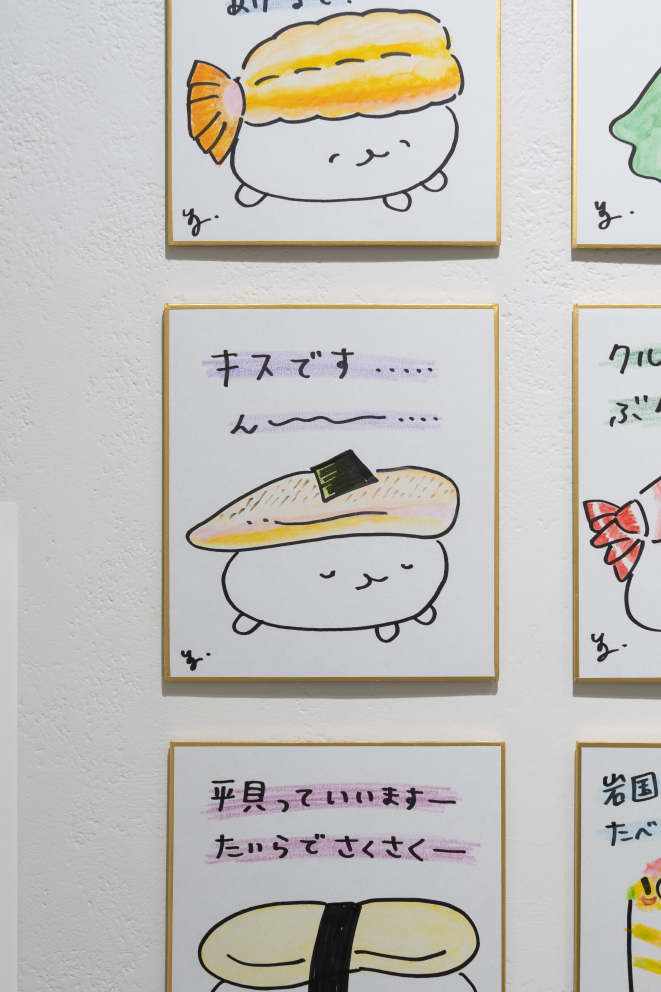 キスです.....
ん〜〜....
クル
ぶ
平貝っていいますー
たいらでさくさくー
岩国
たべ